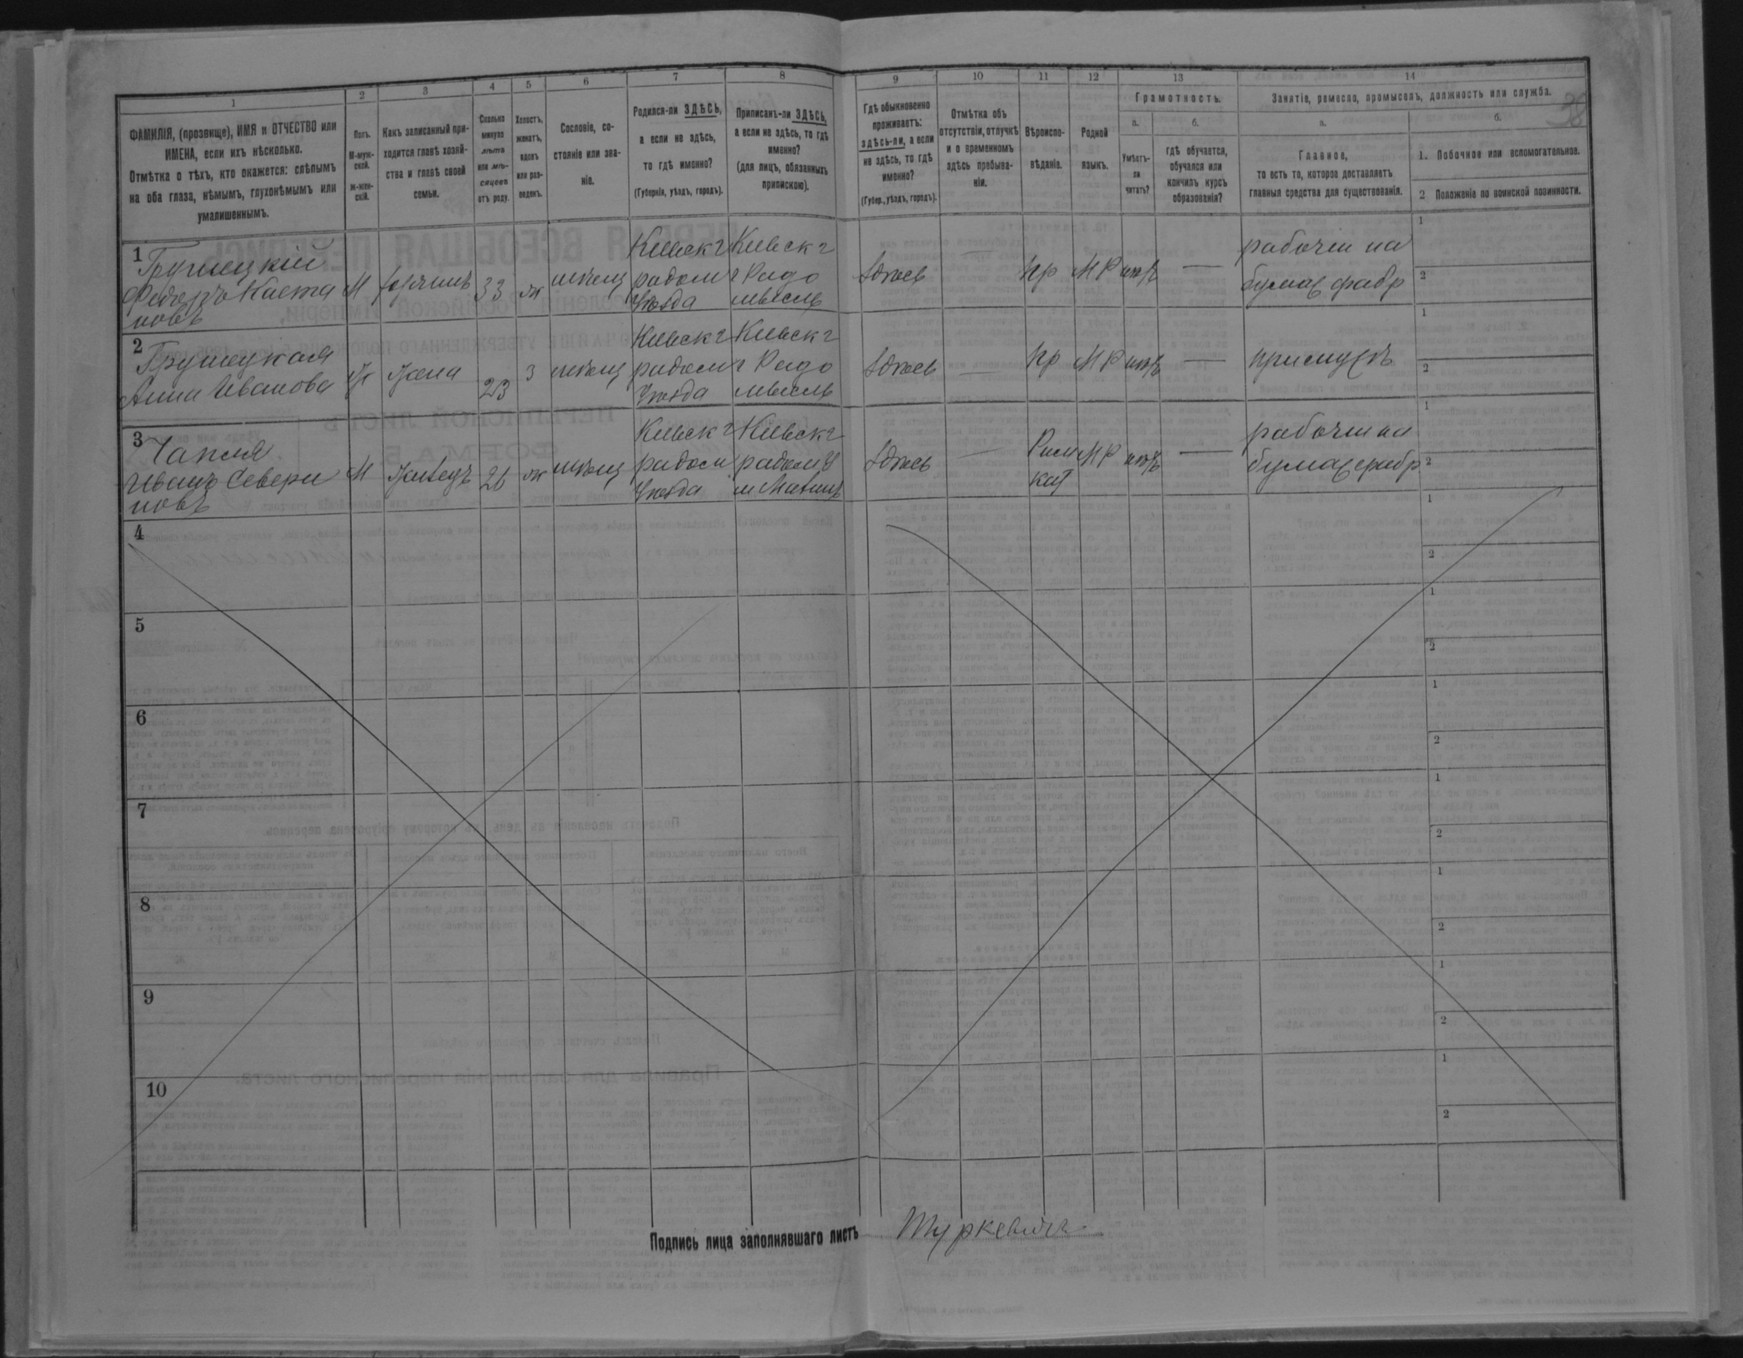 1 2 3 4 5 6 7 8 9 10 11 12 13 14
38
ФАМИЛІЯ, (прозвище), ИМЯ и ОТЧЕСТВО или
ИМЕНА, если ихъ нѣсколько.
Отмѣтка о тѣхъ, кто окажется: слѣпымъ
на оба глаза, нѣмымъ, глухонѣмымъ или
умалишеннымъ.
Полъ.
М-муж-
ской.
Ж-жен-
скій.
Какъ записанный при-
ходится главѣ хозяй-
ства и главѣ своей
семьи.
Сколько
минуло
лѣтъ
или мѣ-
сяцевъ
отъ роду.
Холостъ,
женатъ,
вдовъ
или раз-
веденъ.
Сословіе, со-
стояніе или зва-
ніе.
Родился-ли ЗДѢСЬ,
а если не здѣсь,
то гдѣ именно?
(Губернія, уѣздъ, городъ).
Приписанъ-ли ЗДѢСЬ,
а если не здѣсь, то гдѣ
именно?
(для лицъ, обязанныхъ
припискою).
Гдѣ обыкновенно
проживаетъ:
здѣсь-ли, а если
не здѣсь, то гдѣ
именно?
(Губер., уѣздъ, городъ).
Отмѣтка объ
отсутствіи, отлучкѣ
и о временномъ
здѣсь пребыва-
ніи.
Вѣроиспо-
вѣданіе.
Родной
языкъ.
Грамотность.
а.
Умѣетъ-
ли
читать?
б.
гдѣ обучается,
обучался или
кончилъ курсъ
образованія?
Занятіе, ремесло, промыселъ, должность или служба.
а.
Главное,
то есть то, которое доставляетъ
главныя средства для существованія.
б.
1. Побочное или вспомогательное.
2 Положеніе по воинской повинности.
1 Грушецкій
Федоръ Касья
новъ
М
33
ж
Кіевск г
радом
Уѣзда
Кіевск г
Радо
мысль
Здѣсь
—
пр
М Р
—
рабочій на
бумаж фабр
1
2
2 Грушецкая
Анна Иванова
ж
жена
23
з
Кіевск г
радом
Уѣзда
Кіевск г
Радо
мысль
Здѣсь
—
пр
М Р
—
при мужѣ
1
2
3 Чапля
Иванъ Севери
новъ
М
Жилецъ
26
Кіевск г
радом
Уѣзда
Кіевск г
радом У
м Малин
Здѣсь
—
Рим
кат
М Р
—
рабочій на
бумаж фабр
1
2
4
1
2
5
1
2
6
1
2
7
1
2
8
1
2
9
1
2
10
1
2
Подпись лица заполнявшаго листъ Туркевичъ